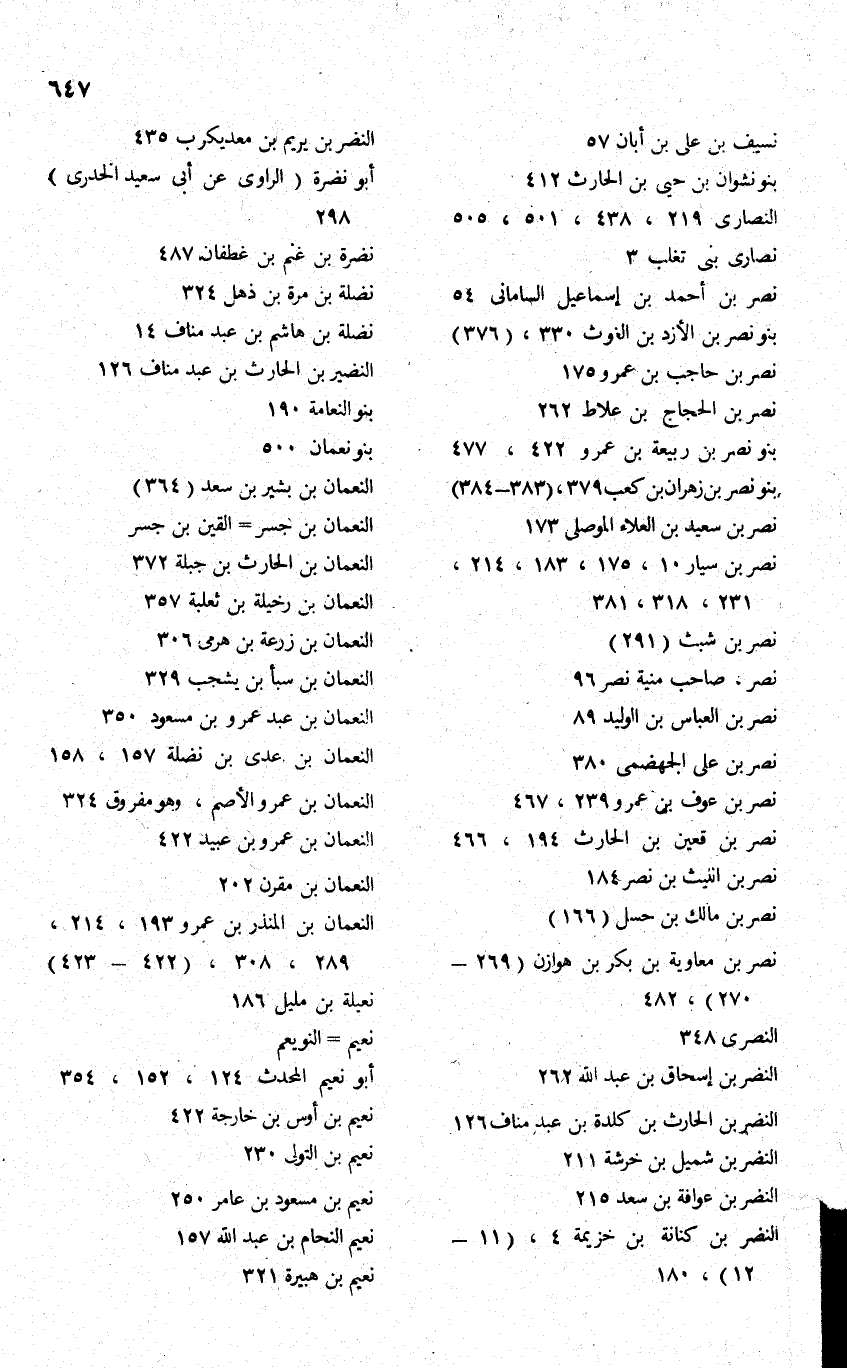 ٦٤٧
نسيف بن على بن أبان ٥٧
بنو نشوان بن حيى بن الحارث ٤١٢
النصارى ٢١٩ ، ٤٣٨ ، ٥٠١ ، ٥٠٥
نصارى بنى تغلب ٣
نصر بن أحمد بن إسماعيل السامانى ٥٤
بنو نصر بن الأزد بن الغوث ٣٣٠ ، (٣٧٦)
نصر بن حاجب بن عمرو ١٧٥
نصر بن الحجاج بن علاط ٢٦٢
بنو نصر بن ربيعة بن عمرو ٤٢٢ ، ٤٧٧
بنو نصر بن زهران بن كعب ٣٧٩، (٣٨٣–٣٨٤)
نصر بن سعيد بن العلاء الموصلى ١٧٣
نصر بن سيار ١٠ ، ١٧٥ ، ١٨٣ ، ٢١٤ ،
٢٣١ ، ٣١٨ ، ٣٨١
نصر بن شبث (٢٩١)
نصر ، صاحب منية نصر ٩٦
نصر بن العباس بن الوليد ٨٩
نصر بن على الجهضمى ٣٨٠
نصر بن عوف بن عمرو ٢٣٩ ، ٤٦٧
نصر بن قعين بن الحارث ١٩٤ ، ٤٦٦
نصر بن الليث بن نصر ١٨٤
نصر بن مالك بن حسل (١٦٦)
نصر بن معاوية بن بكر بن هوازن (٢٦٩ –
٢٧٠) ، ٤٨٢
النصرى ٣٤٨
النضر بن إسحاق بن عبد الله ٢٦٢
النضر بن الحارث بن كلدة بن عبد مناف ١٢٦
النضر بن شميل بن خرشة ٢١١
النضر بن عوافة بن سعد ٢١٥
النضر بن كنانة بن خزيمة ٤ ، (١١ –
١٢) ، ١٨٠
النضر بن يريم بن معديكرب ٤٣٥
أبو نضرة ( الراوى عن أبى سعيد الخدرى )
٢٩٨
نضرة بن غنم بن غطفان ٤٨٧
نضلة بن مرة بن ذهل ٣٢٤
نضلة بن هاشم بن عبد مناف ١٤
النضير بن الحارث بن عبد مناف ١٢٦
بنو النعامة ١٩٠
بنو نعمان ٥٠٠
النعمان بن بشير بن سعد (٣٦٤)
النعمان بن جسر = القين بن جسر
النعمان بن الحارث بن جبلة ٣٧٢
النعمان بن رخيلة بن ثعلبة ٣٥٧
النعمان بن زرعة بن هرمى ٣٠٦
النعمان بن سبأ بن يشجب ٣٢٩
النعمان بن عبد عمرو بن مسعود ٣٥٠
النعمان بن عدى بن نضلة ١٥٧ ، ١٥٨
النعمان بن عمرو الأصم ، وهو مفروق ٣٢٤
النعمان بن عمرو بن عبيد ٤٢٢
النعمان بن مقرن ٢٠٢
النعمان بن المنذر بن عمرو ١٩٣ ، ٢١٤ ،
٢٨٩ ، ٣٠٨ ، (٤٢٢ – ٤٢٣)
نعيلة بن مليل ١٨٦
نعيم = النويعم
أبو نعيم المحدث ١٢٤ ، ١٥٢ ، ٣٥٤
نعيم بن أوس بن خارجة ٤٢٢
نعيم بن التولى ٢٣٠
نعيم بن مسعود بن عامر ٢٥٠
نعيم النحام بن عبد الله ١٥٧
نعيم بن هبيرة ٣٢١